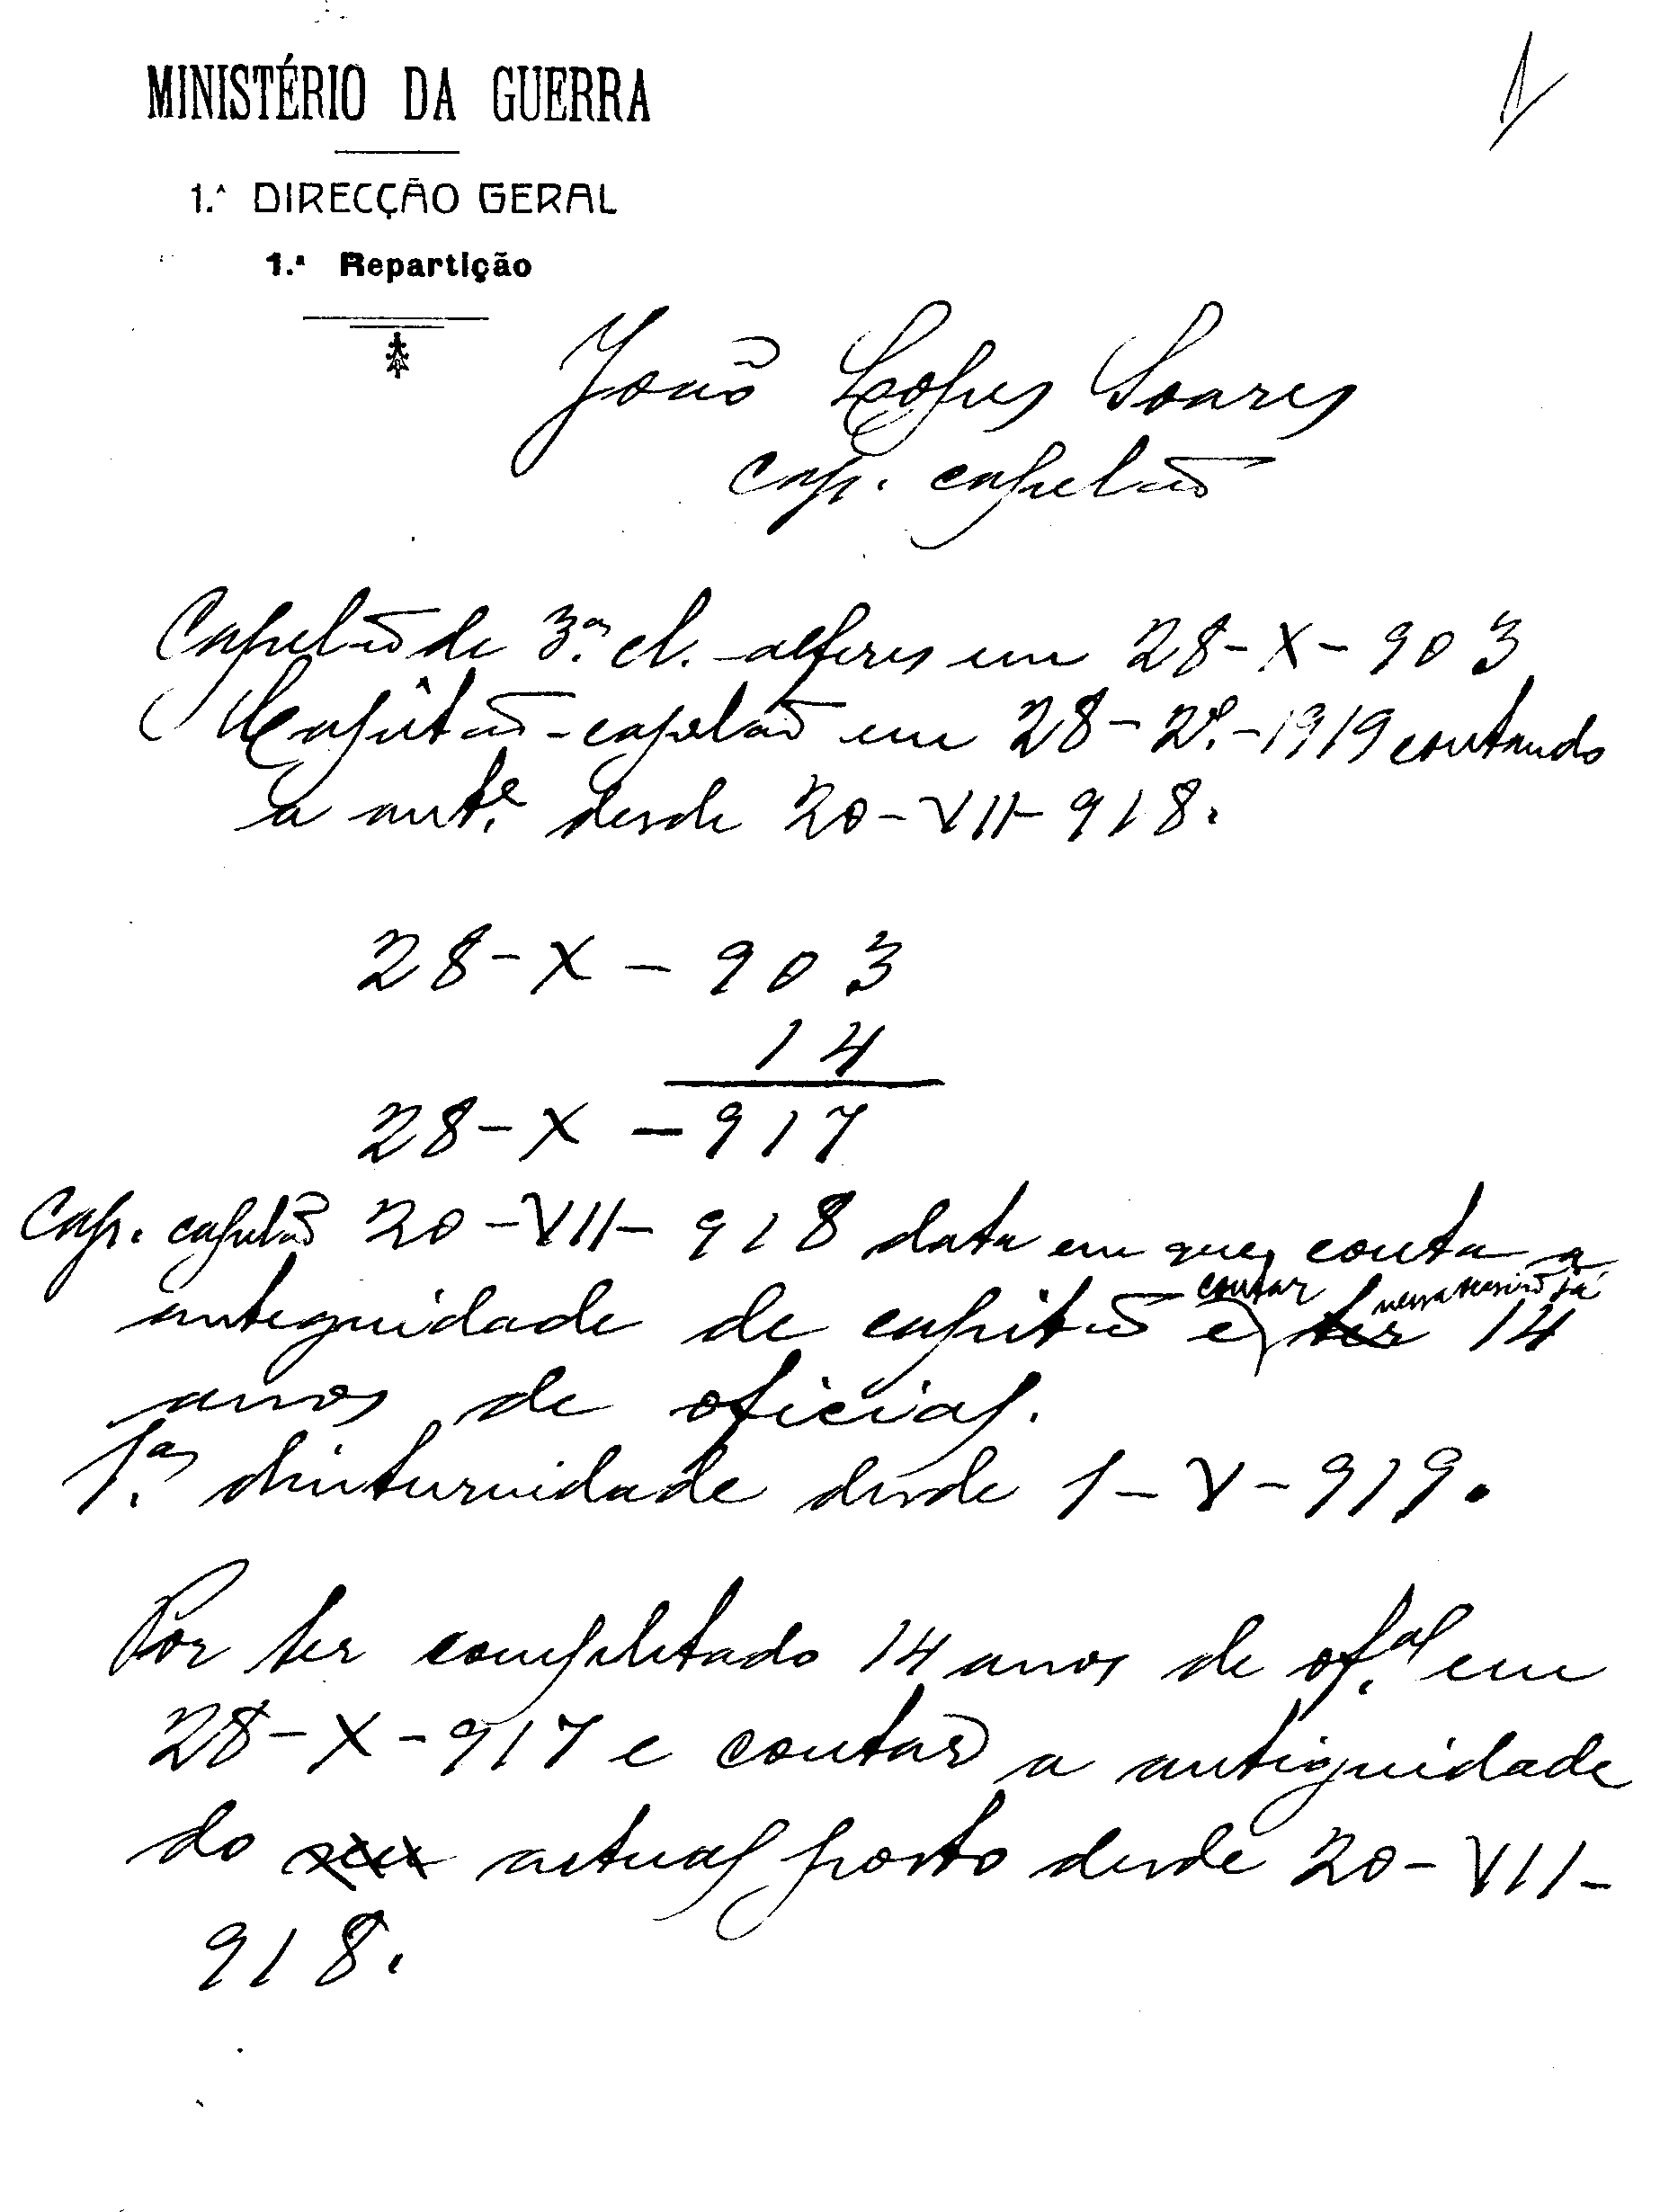 MINISTÉRIO DA GUERRA
1.ª DIRECÇÃO GERAL
1.ª Repartição
João Lopes Soares
cap. capelão
Capelão de 3.ª cl. - alferes em 28-X-903
Capitão-capelão em 28-2º.-1919 contando
a ant.e desde 20-VII-918.
28-X-903
14
28-X-917
Cap. capelão 20-VII-918 data em que conta a
contar nessa ocasião já
anteguidade de capitão e ter 14
anos de oficial.
1.ª diuturnidade desde 1-V-919.
Por ter completado 14 anos de of.al em
28-X-917 e contar a antiguidade
do seu actual posto desde 20-VII-
918.